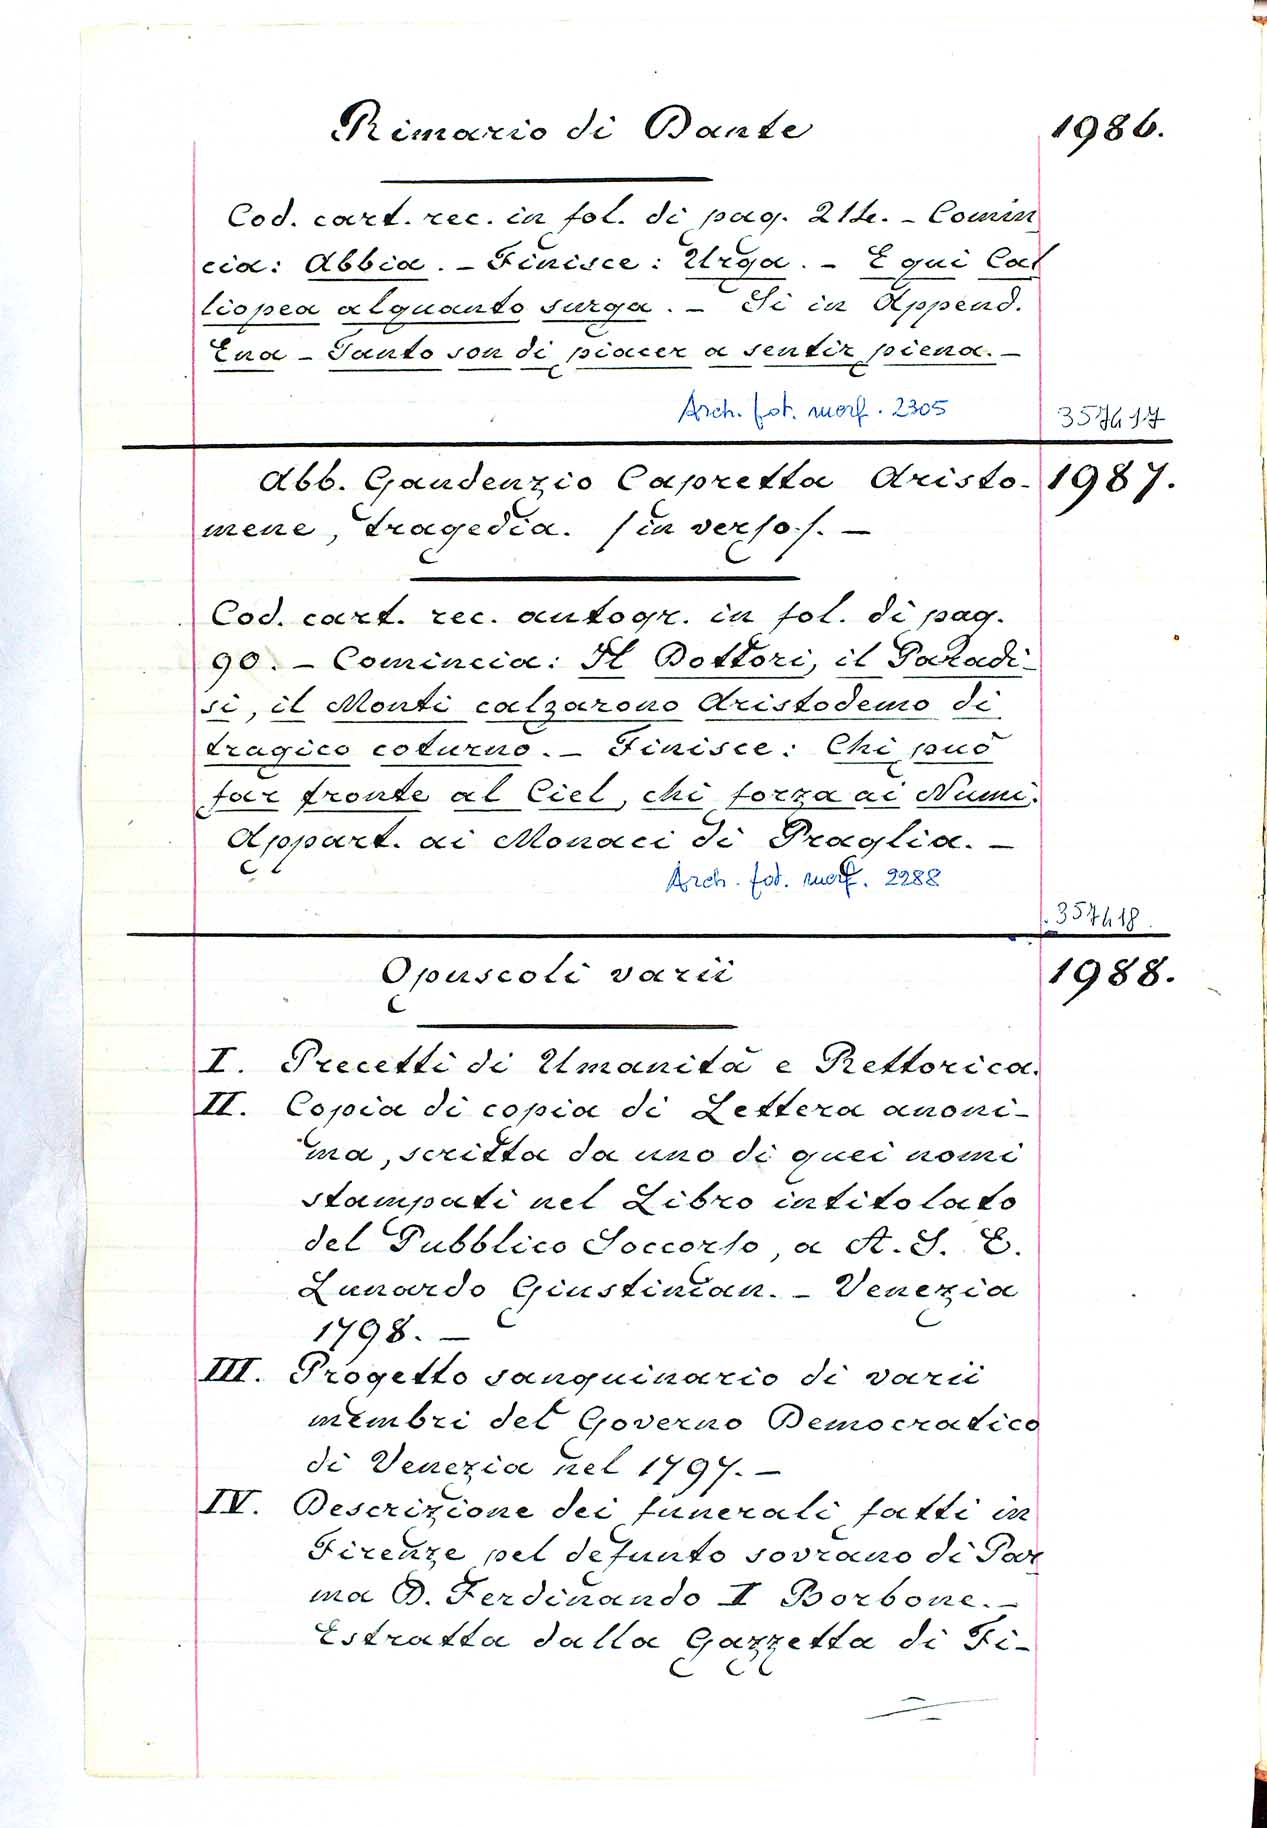 Rimario di Dante 1986.
Cod. cart. rec. in fol. di pag. 214. – Comin
cia: Abbia. – Finisce: Urga. – E qui Cal
liopea alquanto surga. – Si in Append.
Ena – Tanto son di piacer a sentir piena. –
Arch. fot. morf. 2305 357417
Abb. Gaudenzio Capretta Aristo- 1987.
mene, tragedia. /in verso/. –
Cod. cart. rec. autogr. in fol. di pag.
90. – Comincia: Il Dottori, il Paradi-
si, il Monti calzarono Aristodemo di
tragico coturno. – Finisce: Chi può
far fronte al Ciel, chi forza ai Numi.
Appart. ai Monaci di Praglia. –
Arch. fot. morf. 2288
357418
Opuscoli varii 1988.
I. Precetti di Umanità e Rettorica.
II. Copia di copia di Lettera anoni-
ma, scritta da uno di quei nomi
stampati nel Libro intitolato
del Pubblico Soccorso, a A. S. E.
Lunardo Giustinian. – Venezia
1798. –
III. Progetto sanguinario di varii
membri del Governo Democratico
di Venezia nel 1797. –
IV. Descrizione dei funerali fatti in
Firenze pel defunto sovrano di Par
ma D. Ferdinando I Borbone. –
Estratta dalla Gazzetta di Fi-